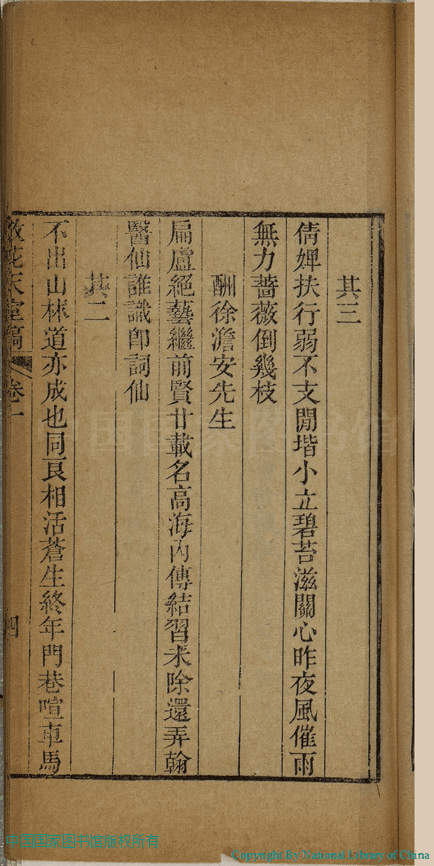 其三
倩婢扶行弱不支閒堦小立碧苔滋關心昨夜風催雨
無力薔薇倒幾枝
酬徐澹安先生
扁盧絕藝繼前賢廿載名高海內傳結習未除還弄翰
醫仙誰識即詞仙
其二
不出山林道亦成也同良相活蒼生終年門巷喧車馬
散花天室稿 卷一
四
中国国家图书馆
中国国家图书馆版权所有
Copyright By National Library of China